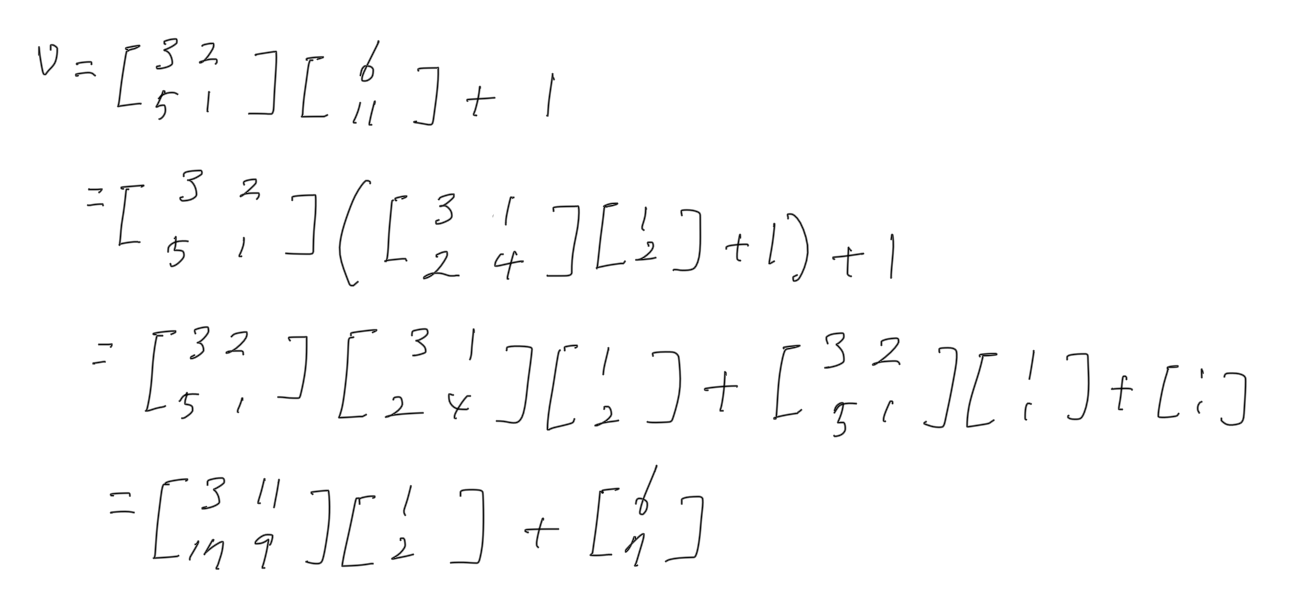 v = [3 2 5 1] [6 11] + 1
= [3 2 5 1] ([3 1 2 4] [1 2] + 1) + 1
= [3 2 5 1] [3 1 2 4] [1 2] + [3 2 5 1] [1 1] + [1 1]
= [3 11 17 9] [1 2] + [6 7]